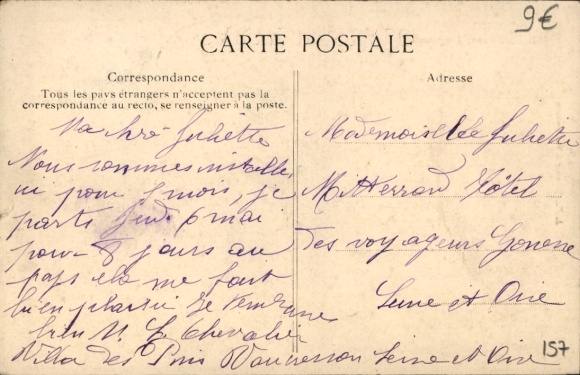 9€
CARTE POSTALE
Correspondance
Tous les pays étrangers n'acceptent pas la
correspondance au recto, se renseigner à la poste.
Adresse
Ma Juliette
Nous sommes installés
ici pour mois, je
parts Jeudi 6 mai
pour 8 jours au
pays cela me fait
bien plaisir Je
bien M. Le Chevalier
Villa des Pins Vaucresson Seine et Oise
Mademoiselle Juliette
Mitterrand Hôtel
des voyageurs
Seine et Oise
157